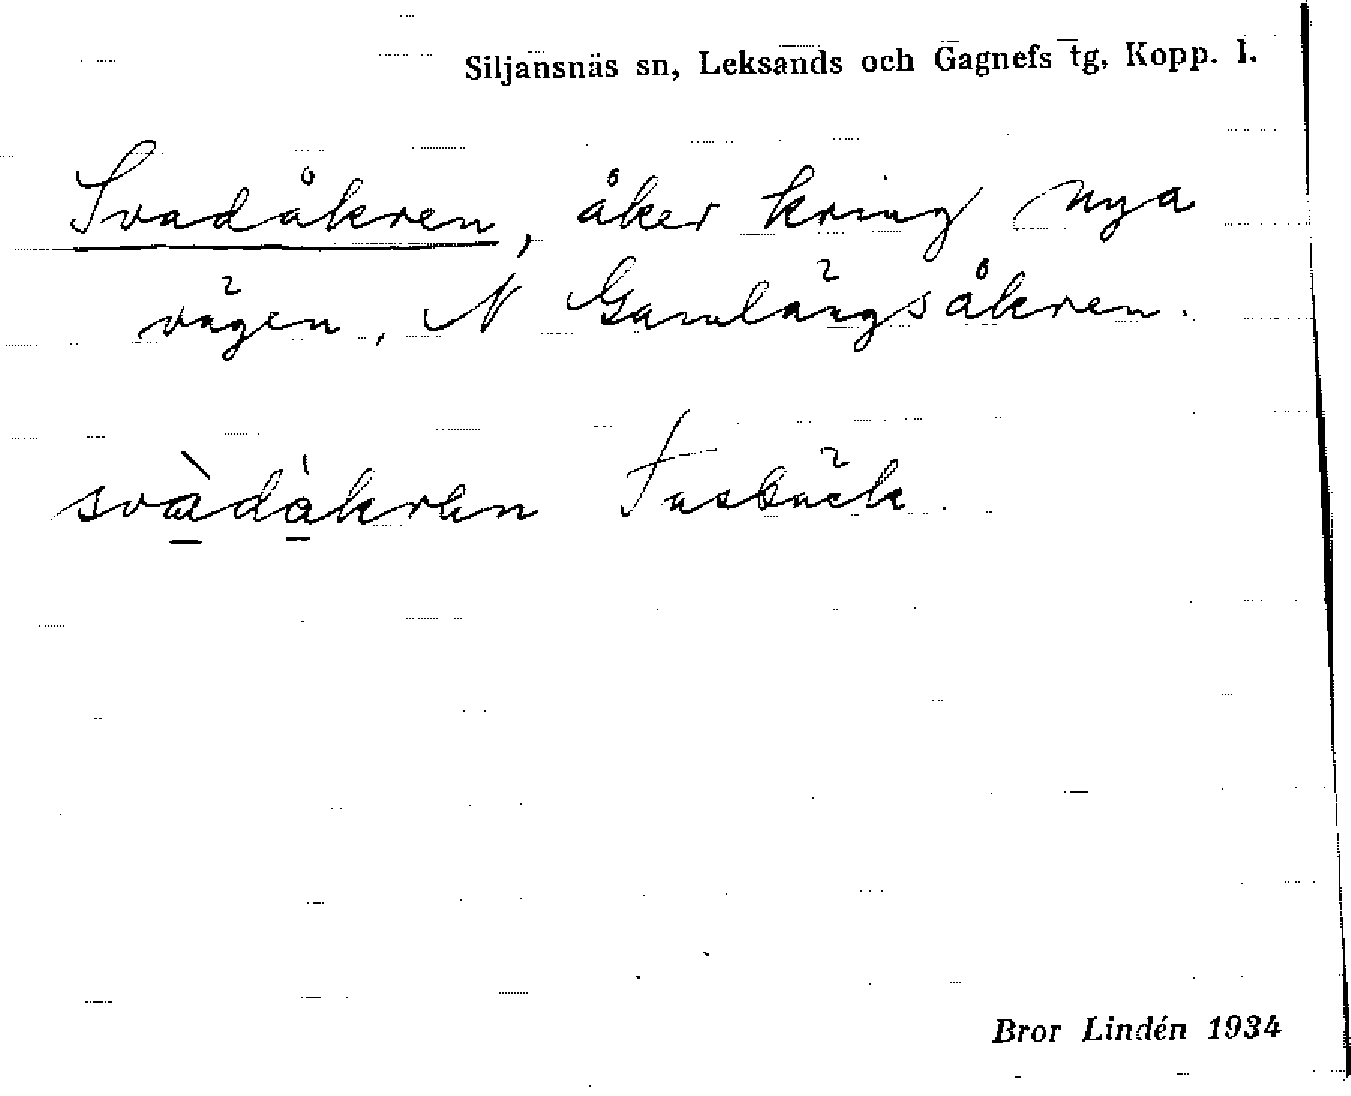 Siljansnäs sn, Leksands och Gagnefs tg, Kopp. l.
Svadåkren, åker kring nya
vägen, N Gamlängsåkren.
svàdàkrän Fusbäck.
Bror Lindén 1934